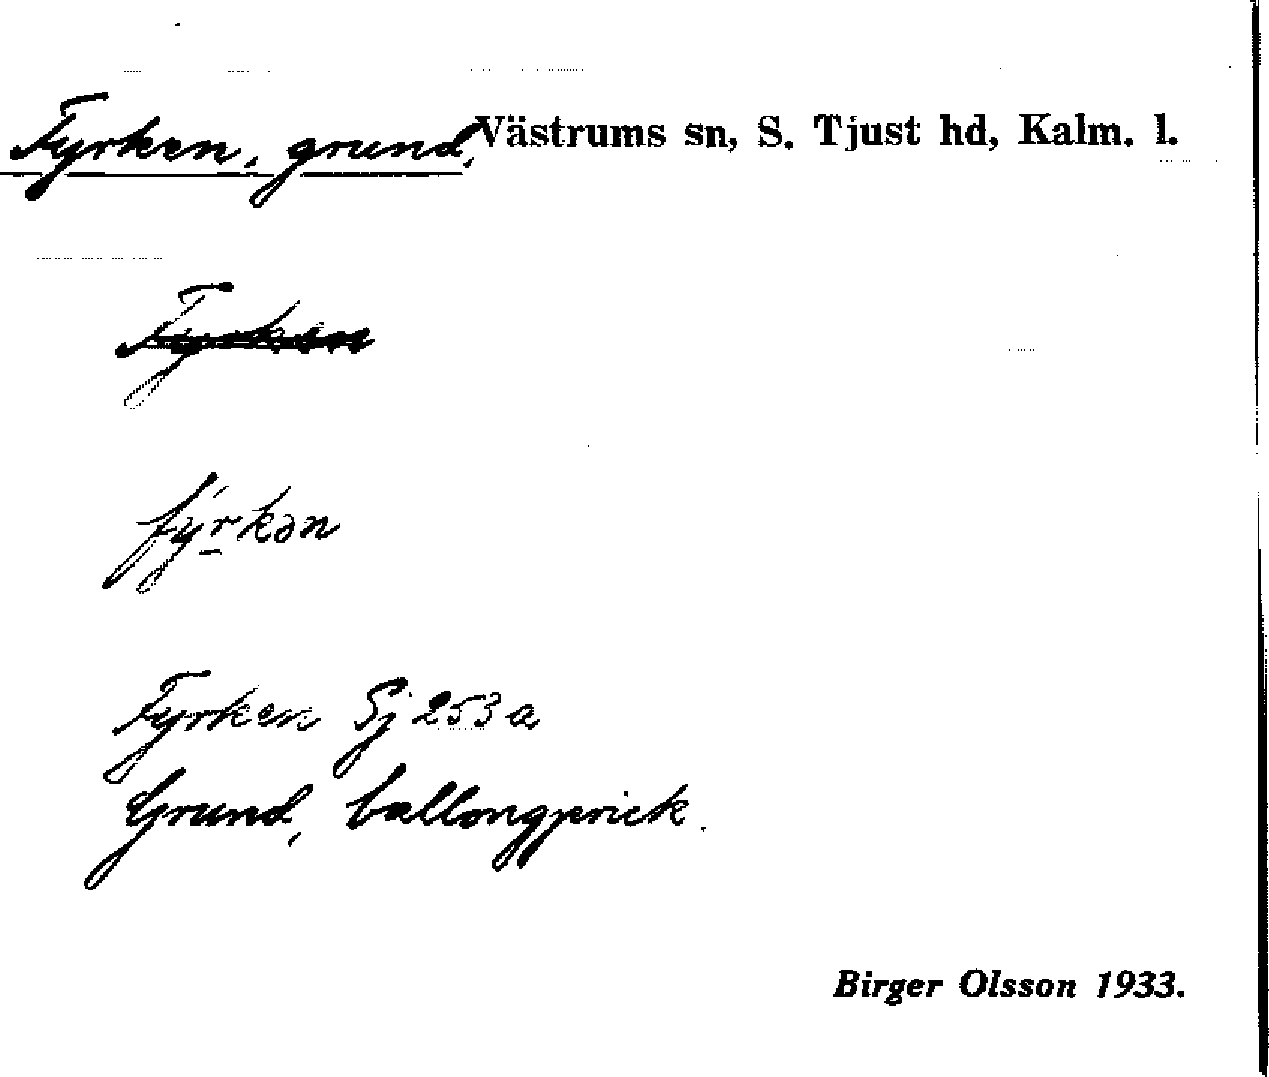 Fyrken, grund, Västrums sn, S. Tjust hd, Kalm. l.
Fyrken
fý̀rkən
Fyrken Sj 253 a
Grund, ballongprick.
Birger Olsson 1933.